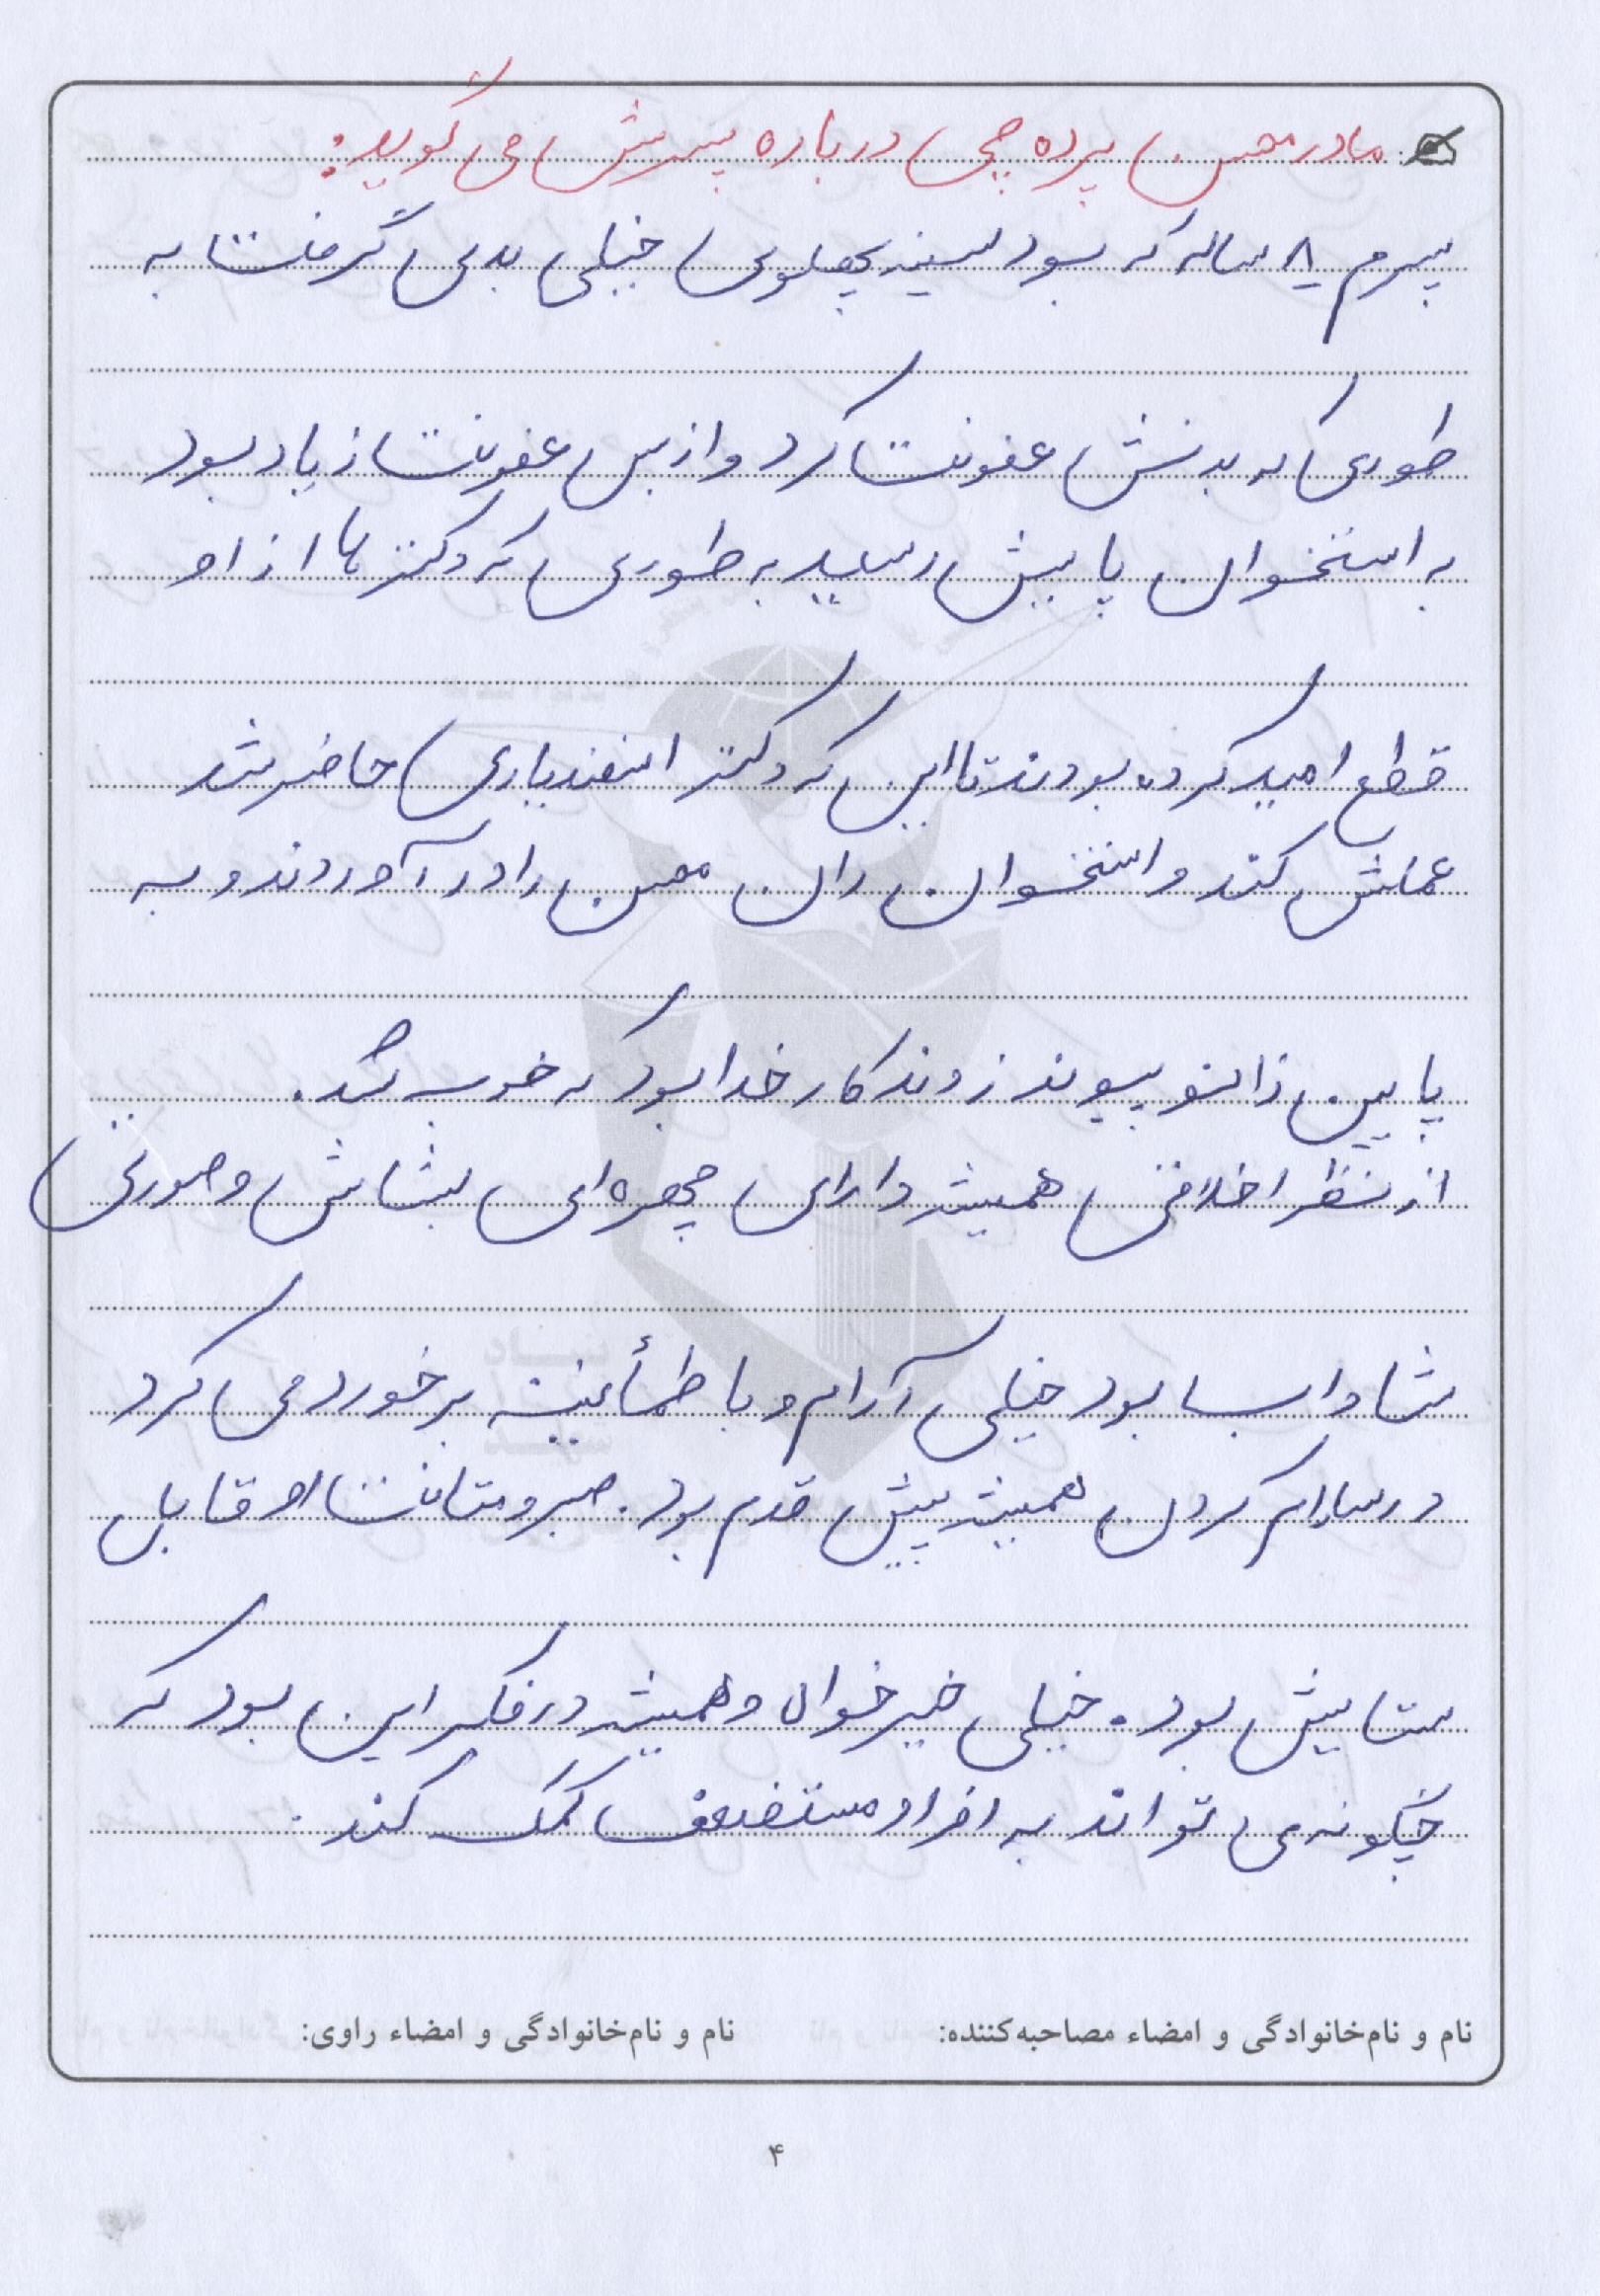 مادر محسن پرده چی درباره پسرش می گوید:
پسرم ۸ ساله که بود سینه پهلوی خیلی بدی گرفت به
طوری که بدنش عفونت کرد و از بس عفونت زیاد بود
به استخوان پایش رسید به طوری که دکتر ها از او
قطع امید کرده بودند تا این که دکتر اسفندیاری حاضر شد
عملش کند و استخوان ران محسن را در آوردند و به
پایین زانو پیوند زدند کار خدا بود که خوب شد.
از نظر اخلاقی همیشه دارای چهره ای بشاش و صورتی
شاداب بود خیلی آرام و با طمأنینه برخورد می کرد
در سلام کردن همیشه پیش قدم بود. صبر و متانت او قابل
ستایش بود. خیلی خیرخواه و همیشه در فکر این بود که
چگونه می تواند به افراد مستضعف کمک کند.
نام و نام‌خانوادگی و امضاء مصاحبه‌کننده: نام و نام‌خانوادگی و امضاء راوی:
۴